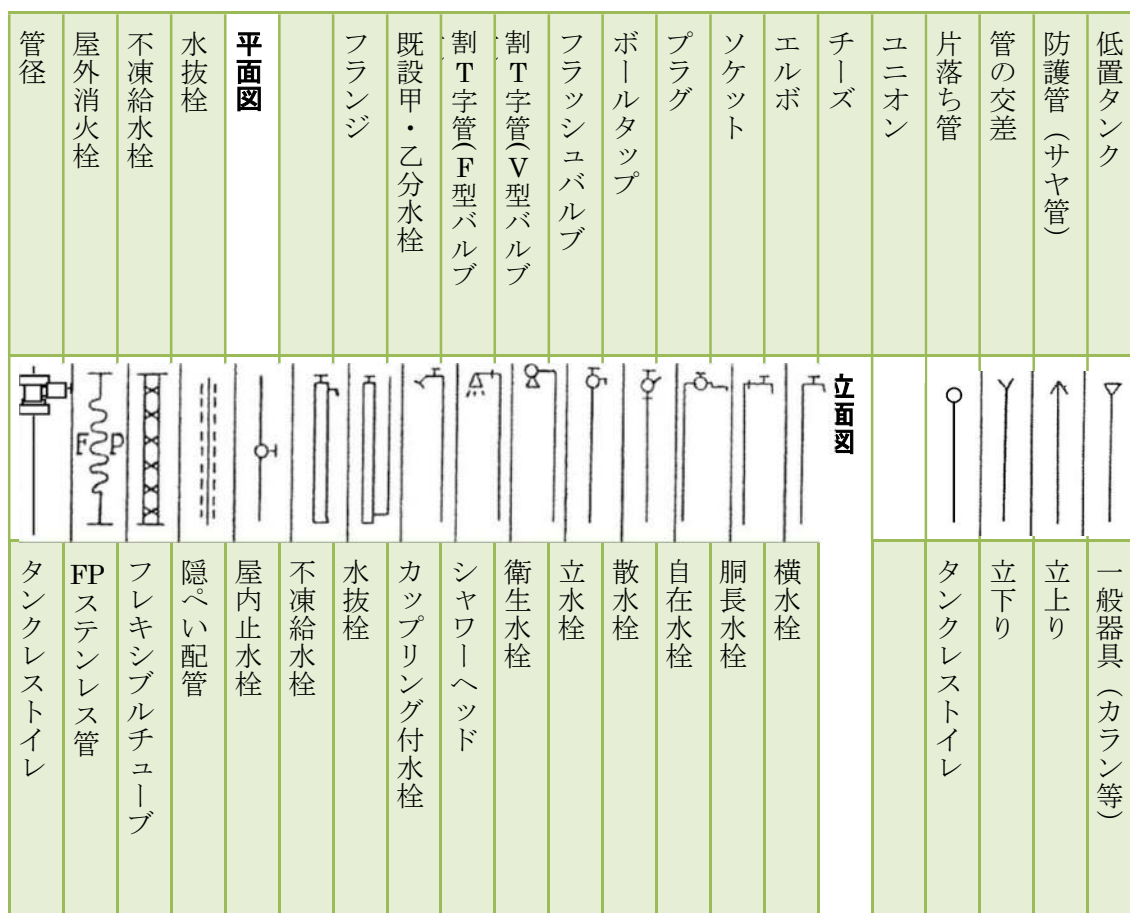 低置タンク
防護管（サヤ管）
管の交差
片落ち管
ユニオン
チーズ
エルボ
ソケット
プラグ
ボールタップ
フラッシュバルブ
割T字管(V型バルブ
割T字管(F型バルブ
既設甲・乙分水栓
フランジ
平面図
水抜栓
不凍給水栓
屋外消火栓
管径
立面図
FP
一般器具（カラン等）
立上り
立下り
タンクレストイレ
横水栓
胴長水栓
自在水栓
散水栓
立水栓
衛生水栓
シャワーヘッド
カップリング付水栓
水抜栓
不凍給水栓
屋内止水栓
隠ぺい配管
フレキシブルチューブ
FPステンレス管
タンクレストイレ